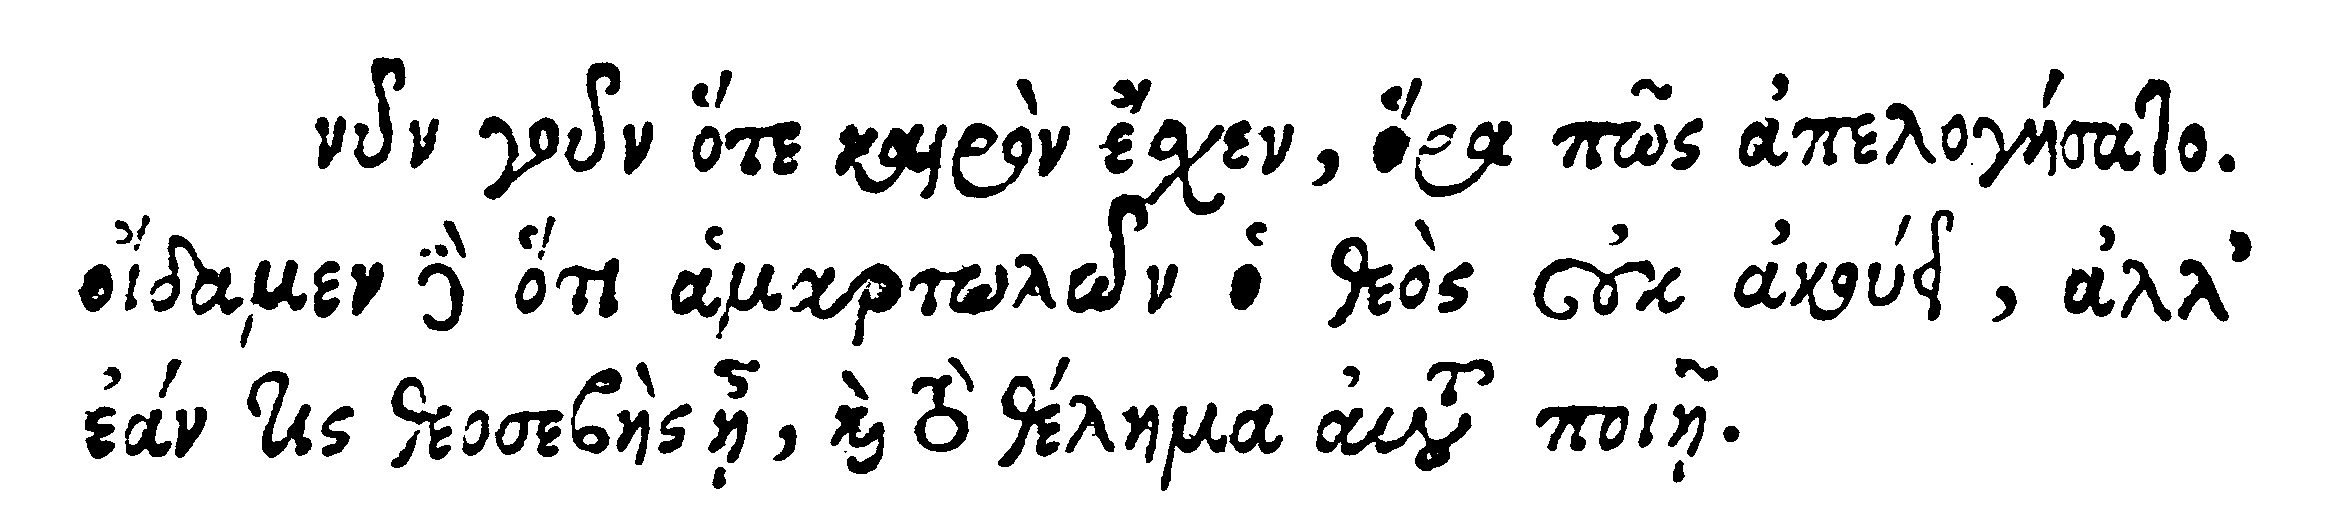 νῦν γοῦν ὅτε καιρὸν ἔχεν, ὅρα πῶς ἀπελογήσατο.
οἴδαμεν δὲ ὅτι ἁμαρτωλῶν ὁ θεὸς οὐκ ἀκούει, ἀλλ’
ἐάν τις θεοσεβὴς ᾖ, καὶ τὸ θέλημα αὐτοῦ ποιῇ.